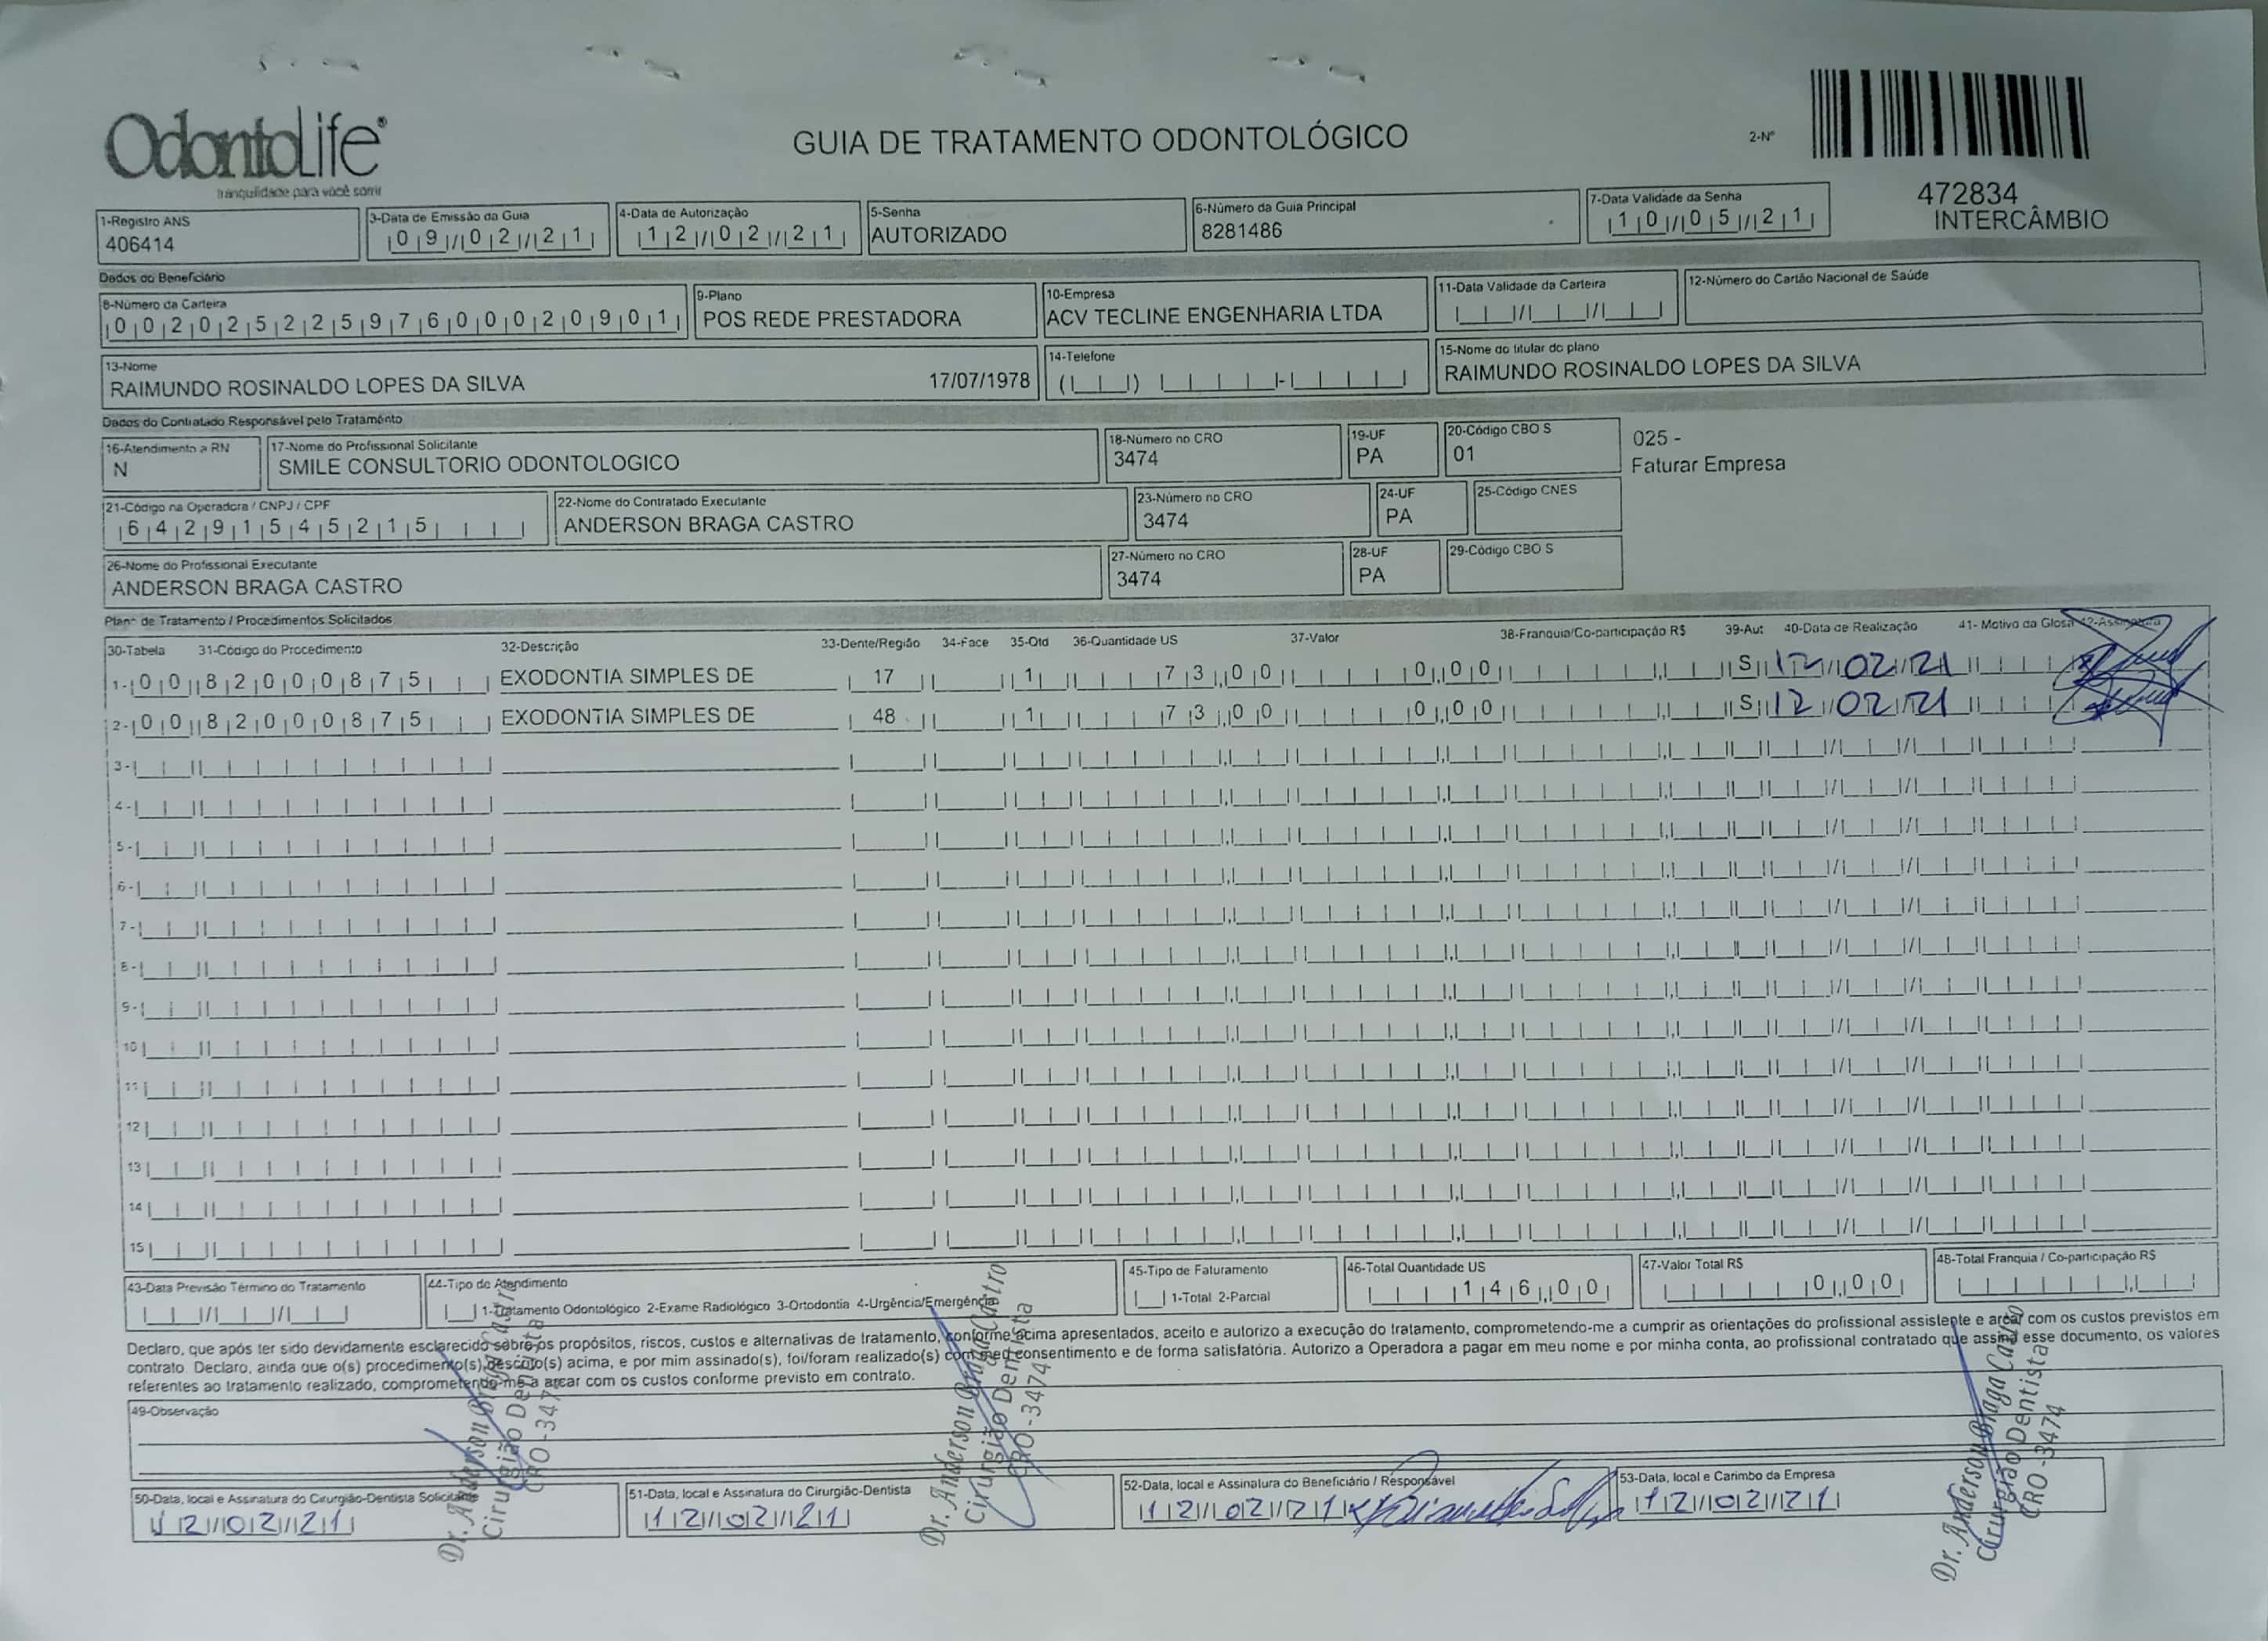 OdontoLife®
tranquilidade para você sorrir
GUIA DE TRATAMENTO ODONTOLÓGICO
2-Nº
472834
INTERCÂMBIO
1-Registro ANS
406414
3-Data de Emissão da Guia
09/02/21
4-Data de Autorização
12/02/21
5-Senha
AUTORIZADO
6-Número da Guia Principal
8281486
7-Data Validade da Senha
10/05/21
Dados do Beneficiário
8-Número da Carteira
00202522597600020901
9-Plano
POS REDE PRESTADORA
10-Empresa
ACV TECLINE ENGENHARIA LTDA
11-Data Validade da Carteira
12-Número do Cartão Nacional de Saúde
13-Nome
RAIMUNDO ROSINALDO LOPES DA SILVA 17/07/1978
14-Telefone
15-Nome do titular do plano
RAIMUNDO ROSINALDO LOPES DA SILVA
Dados do Contratado Responsável pelo Tratamento
16-Atendimento a RN
N
17-Nome do Profissional Solicitante
SMILE CONSULTORIO ODONTOLOGICO
18-Número no CRO
3474
19-UF
PA
20-Código CBO S
01
025 -
Faturar Empresa
21-Código na Operadora / CNPJ / CPF
64291545215
22-Nome do Contratado Executante
ANDERSON BRAGA CASTRO
23-Número no CRO
3474
24-UF
PA
25-Código CNES
26-Nome do Profissional Executante
ANDERSON BRAGA CASTRO
27-Número no CRO
3474
28-UF
PA
29-Código CBO S
Plano de Tratamento / Procedimentos Solicitados
30-Tabela 31-Código do Procedimento 32-Descrição 33-Dente/Região 34-Face 35-Qtd 36-Quantidade US 37-Valor 38-Franquia/Co-participação R$ 39-Aut 40-Data de Realização 41- Motivo da Glosa 42-Assinatura
1- 00 82000875 EXODONTIA SIMPLES DE 17 1 73,00 0,00 S 12/02/21
2- 00 82000875 EXODONTIA SIMPLES DE 48 1 73,00 0,00 S 12/02/21
3-
4-
5-
6-
7-
8-
9-
10
11
12
13
14
15
43-Data Previsão Término do Tratamento
44-Tipo de Atendimento
1-Tratamento Odontológico 2-Exame Radiológico 3-Ortodontia 4-Urgência/Emergência
45-Tipo de Faturamento
1-Total 2-Parcial
46-Total Quantidade US
146,00
47-Valor Total R$
0,00
48-Total Franquia / Co-participação R$
Declaro, que após ter sido devidamente esclarecido sobre os propósitos, riscos, custos e alternativas de tratamento, conforme acima apresentados, aceito e autorizo a execução do tratamento, comprometendo-me a cumprir as orientações do profissional assistente e arcar com os custos previstos em
contrato. Declaro, ainda que o(s) procedimento(s) descrito(s) acima, e por mim assinado(s), foi/foram realizado(s) com meu consentimento e de forma satisfatória. Autorizo a Operadora a pagar em meu nome e por minha conta, ao profissional contratado que assina esse documento, os valores
referentes ao tratamento realizado, comprometendo-me a arcar com os custos conforme previsto em contrato.
49-Observação
50-Data, local e Assinatura do Cirurgião-Dentista Solicitante
12/02/21
51-Data, local e Assinatura do Cirurgião-Dentista
12/02/21
52-Data, local e Assinatura do Beneficiário / Responsável
12/02/21
53-Data, local e Carimbo da Empresa
12/02/21
Dr. Anderson Braga Castro
Cirurgião Dentista
CRO-3474
Dr. Anderson Braga Castro
Cirurgião Dentista
CRO-3474
Dr. Anderson Braga Castro
Cirurgião Dentista
CRO-3474